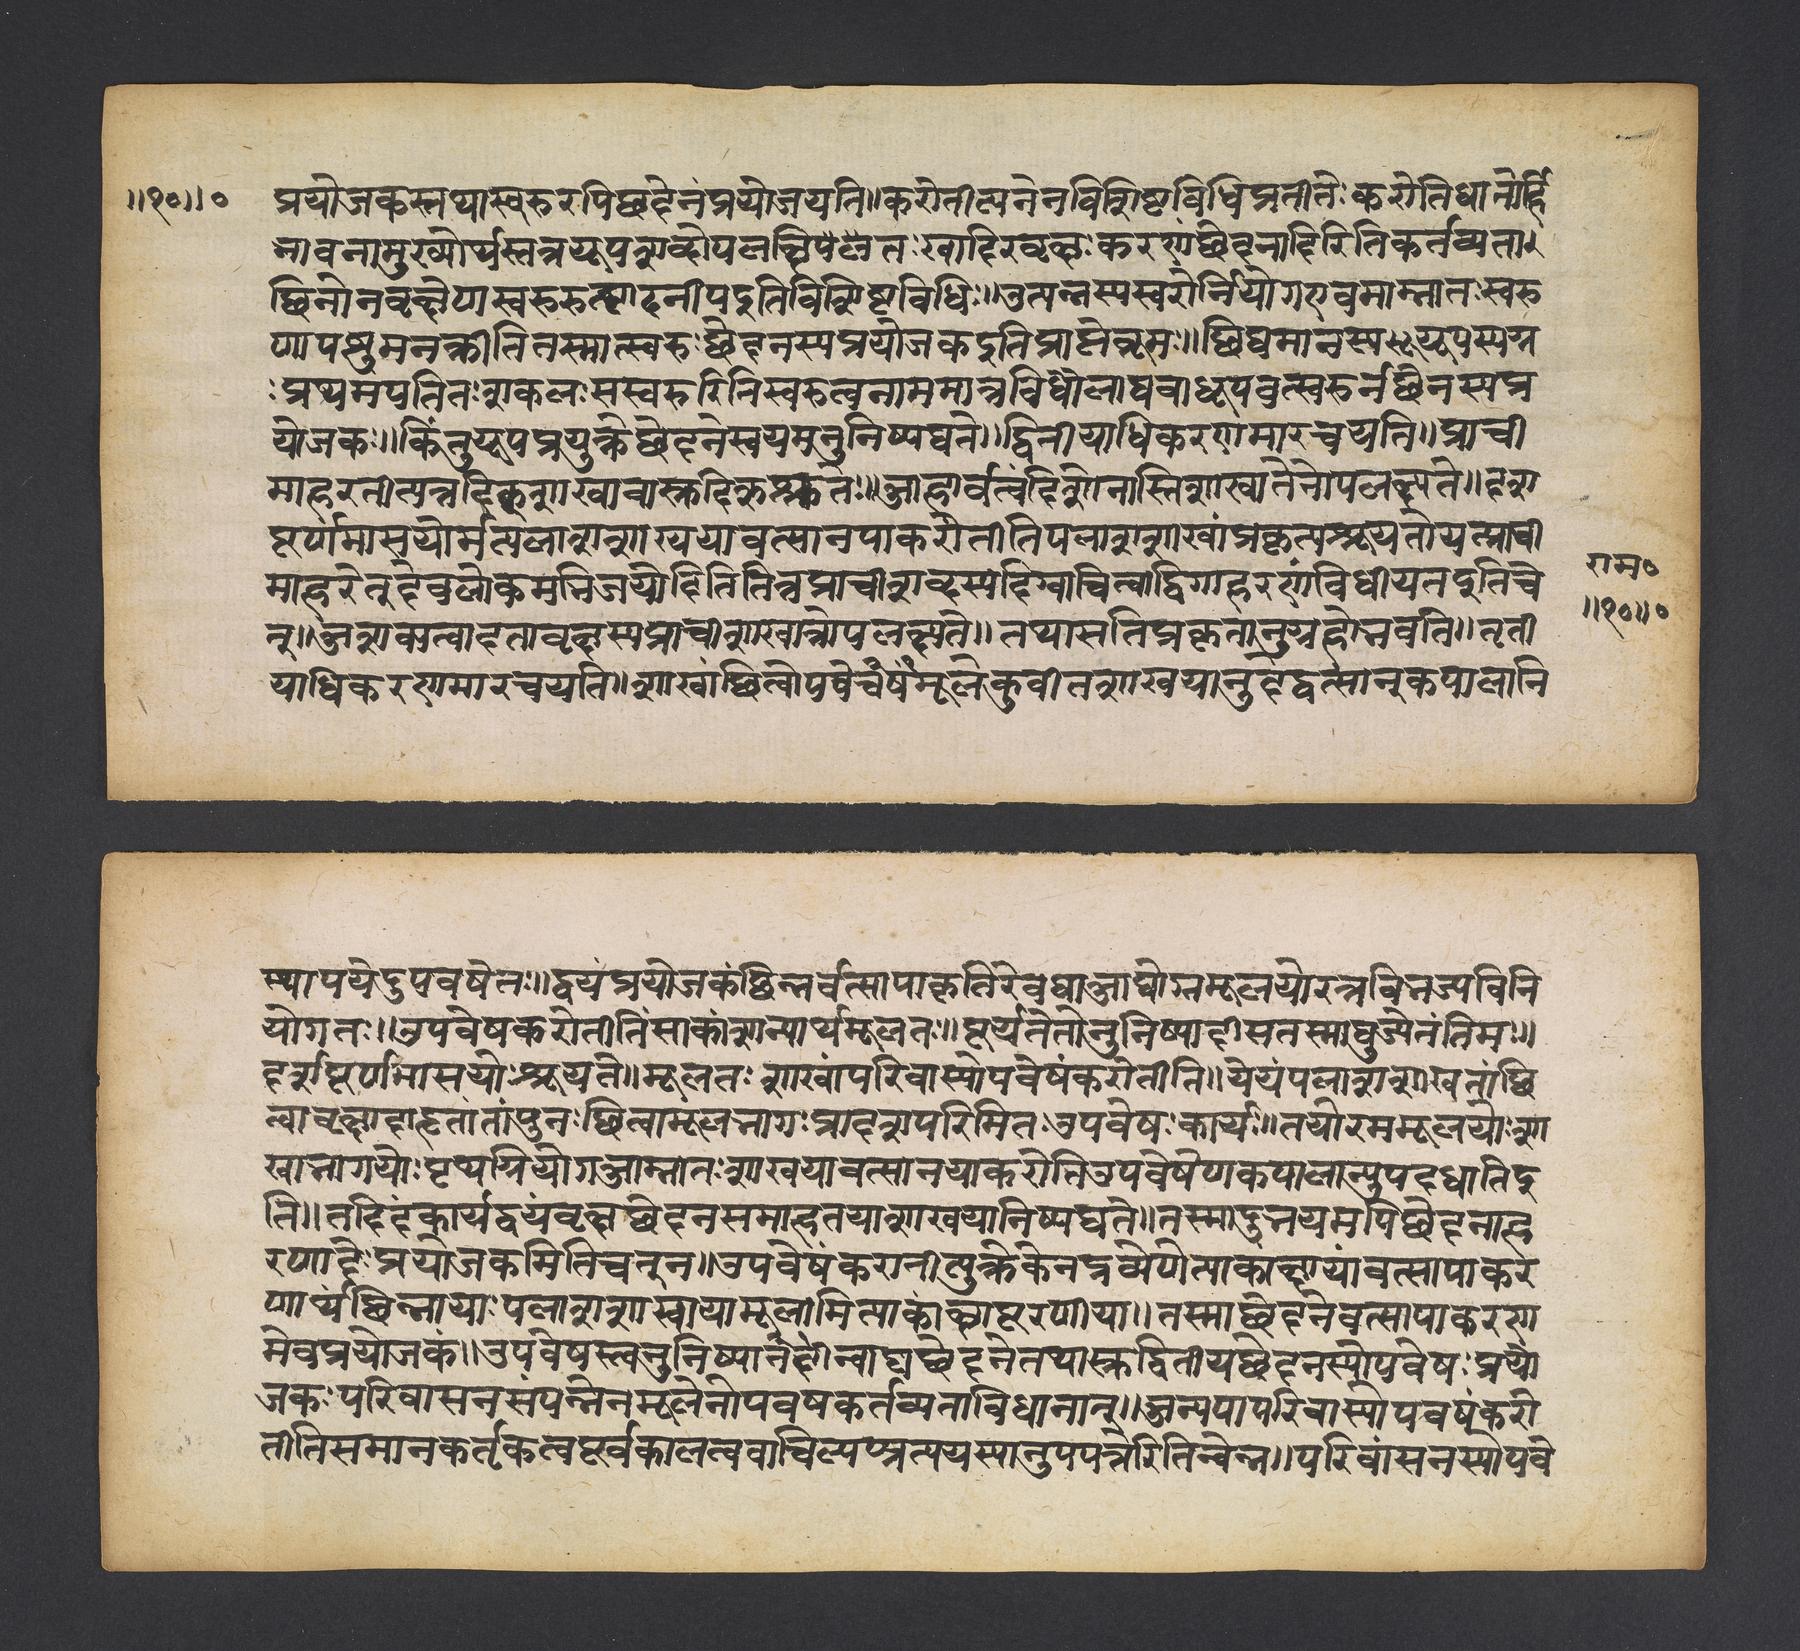 ॥१०॥०
प्रयोजकस्तथास्वरुरपिछेदनंप्रयोजयति॥करोतीत्यनेनविशिष्टविधिप्रतीतेः करोतिधातोर्हि
भावनामुख्योर्थस्तत्रयूपशब्दोपलक्षितः खादिरवृक्षः करणंछेदनादिरितिकर्तव्यता॥
छिन्नेनवृक्षेणस्वरुरुत्पादनीयइतिविशिष्टविधिः॥उत्पन्नस्यस्वरोर्विनियोगएवमाम्नातः स्वरु
णापशुमनक्तीतितस्मात्स्वरुः छेदनस्यप्रयोजकइतिप्राप्तेब्रूमः॥छिद्यमानस्ययूपस्यय
ः प्रथमपतितः शकलः सस्वरुरितिस्वरुत्वनाममात्रविधौलाघवाद्यूपवत्स्वरुर्नछेदनस्यप्र
योजकः॥किंतुयूपप्रयुक्तेछेदनेस्वयमनुनिष्पद्यते॥द्वितीयाधिकरणमारचयति॥प्राची
माहरतीत्यत्रदिक्शाखावास्तुदिक्श्रुतेः॥आहार्यत्वंदिशोनास्तिशाखातेनोपलक्ष्यते॥दर्श
पूर्णमासयोर्मत्पलाशशाखयावत्सानपाकरोतीतिपलाशशाखांप्रकृत्यश्रूयतेयत्प्राची
माहरेत्देवलोकमभिजयेदितितत्रप्राचीशब्दस्यदिग्वाचित्वाद्दिगाहरणंविधीयतइतिचे
न्॥अशक्यत्वादतोवृक्षस्यप्राचीशाखात्रोपलक्ष्यते॥तथासतिप्रकृतानुग्रहोभवति॥तृती
याधिकरणमारचयति॥शाखांछित्वोपवेषंचमूलेकुर्वीतशाखयानुदेद्वत्सान्कपालानि
राम०
॥१०॥०
स्थापयेदुपवेषतः॥द्वयंप्रयोजकंछित्तेर्वत्सापाकृतिरेवधाआद्योग्रमूलयोरत्रविभज्यविनि
योगतः॥उपवेषंकरोतीतिसाकांक्षान्यार्थमूलतः॥पूर्यतेतोनुनिष्पादीसतस्माद्युज्येतंतिमः॥
दर्शपूर्णमासयोः श्रूयते॥मूलतः शाखांपरिवास्योपवेषंकरोतीति॥येयंपलाशशाखातांछि
त्वावृक्षादाहृतांतांपुनः छित्वामूलभागः प्रादेशपरिमितः उपवेषः कार्यः॥तयोरग्रमूलयोः शा
खाभागयोः पृथग्विनियोगआम्नातः शाखयावत्सानपाकरोतिउपवेषेणकपालान्युपदधातिइ
ति॥तदिदंकार्यद्वयंवृक्षछेदनसमाहृतयाशाखयानिष्पद्यते॥तस्मादुभयमपिछेदनाह
रणादेः प्रयोजकमितिचेन्न॥उपवेषंकरोतीत्युक्तेकेनद्रव्येणेत्याकांक्षायांवत्सापाकर
णार्थंछिन्नायाः पलाशशाखायामूलमित्याकांक्षापूरणीया॥तस्माछेदनेवत्सापाकरण
मेवप्रयोजकं॥उपवेषस्त्वनुनिष्पादीनन्वाद्यछेदनेतथास्तुद्वितीयछेदनस्योपवेषः प्रयो
जकः परिवासनसंपन्नेनमूलेनोपवेषकर्तव्यताविधानात्॥अन्यथापरिवास्योपवेषंकरो
तीतिसमानकर्तृकत्वपूर्वकालत्ववाचिल्यप्प्रत्ययस्यानुपपत्तेरितिचेन्न॥परिवासनस्योपवे